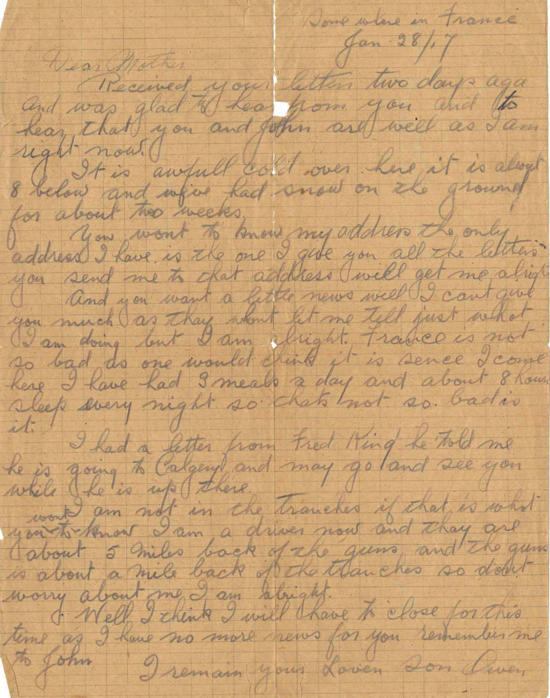 Some where in France
Jan 28/17
Dear Mother
Received your letters two days aga
and was glad to hear from you and to
hear that you and John are well as I am
right now.
It is awfull cold over here it is about
8 below and wive had snow on the ground
for about two weeks
You wont to know my address the only
address I have is the one I give you all the letters
you send me to that address will get me alright
And you want a little news well I cant give
you much as thay wont let me tell just what
I am doing but I am alright. France is not
so bad as one would think it is sence I come
here I have had 3 meals a day and about 8 hours
sleep every night so thats not so bad is
it.
I had a letter from Fred King he told me
he is going to Calgery and may go and see you
while he is up there
I am not in the tranches if that is what
you want to know I am a driver now and thay are
about 5 miles back of the guns, and the guns
is about a mile back of the tranches so dont
worry about me, I am alright.
Well I think I will have to close for this
time as I have no more news for you remember me
to John
I remain your Loven son Owen